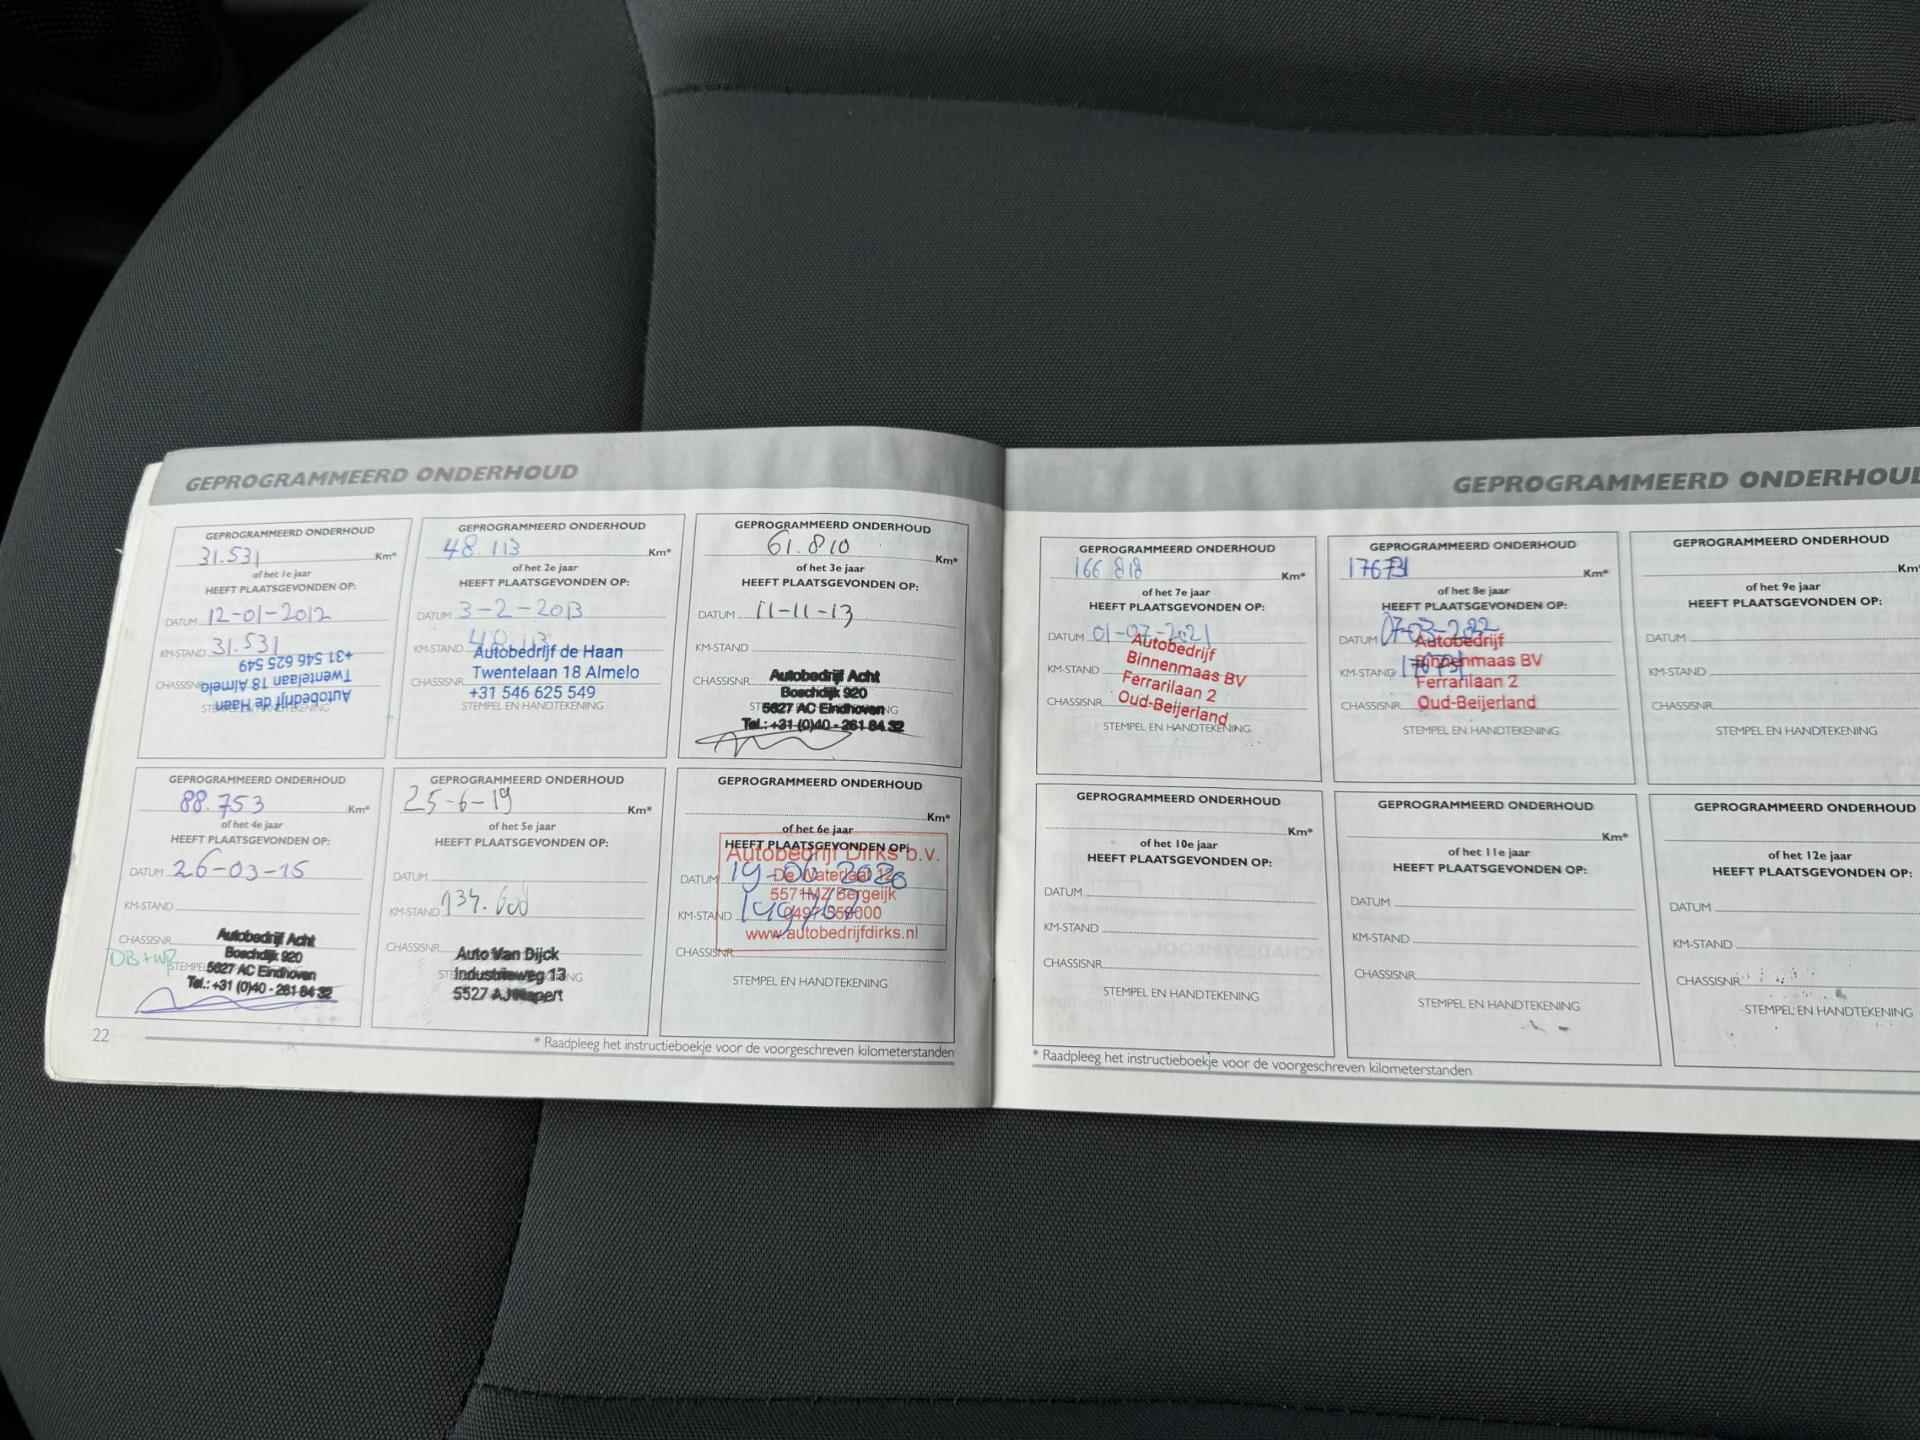 GEPROGRAMMEERD ONDERHOUD
GEPROGRAMMEERD ONDERHOUD
31.531 Km*
of het 1e jaar
HEEFT PLAATSGEVONDEN OP:
DATUM 12-01-2012
KM-STAND 31.531
CHASSISNR
Autobedrijf de Haan
Twentelaan 18 Almelo
+31 546 625 549
GEPROGRAMMEERD ONDERHOUD
48.113 Km*
of het 2e jaar
HEEFT PLAATSGEVONDEN OP:
DATUM 3-2-2013
KM-STAND 48.113
Autobedrijf de Haan
CHASSISNR Twentelaan 18 Almelo
+31 546 625 549
STEMPEL EN HANDTEKENING
GEPROGRAMMEERD ONDERHOUD
61.810 Km*
of het 3e jaar
HEEFT PLAATSGEVONDEN OP:
DATUM 11-11-13
KM-STAND
CHASSISNR Autobedrijf Acht
Boschdijk 920
5627 AC Eindhoven
Tel.: +31 (0)40 - 261 84 32
GEPROGRAMMEERD ONDERHOUD
88.753 Km*
of het 4e jaar
HEEFT PLAATSGEVONDEN OP:
DATUM 26-03-15
KM-STAND
CHASSISNR Autobedrijf Acht
Boschdijk 920
STEMPEL 5627 AC Eindhoven
Tel.: +31 (0)40 - 261 84 32
GEPROGRAMMEERD ONDERHOUD
25-6-19 Km*
of het 5e jaar
HEEFT PLAATSGEVONDEN OP:
DATUM
KM-STAND
CHASSISNR Auto Van Dijck
Industrieweg 13
5527 AJ Hapert
GEPROGRAMMEERD ONDERHOUD
Km*
of het 6e jaar
HEEFT PLAATSGEVONDEN OP:
Autobedrijf Dirks b.v.
DATUM 19-06-2020
5571MZ Bergeijk
KM-STAND
www.autobedrijfdirks.nl
CHASSISNR
STEMPEL EN HANDTEKENING
22
* Raadpleeg het instructieboekje voor de voorgeschreven kilometerstanden
GEPROGRAMMEERD ONDERHOUD
GEPROGRAMMEERD ONDERHOUD
166 818 Km*
of het 7e jaar
HEEFT PLAATSGEVONDEN OP:
DATUM 01-07-2021
Autobedrijf
KM-STAND Binnenmaas BV
Ferrarilaan 2
CHASSISNR Oud-Beijerland
STEMPEL EN HANDTEKENING
GEPROGRAMMEERD ONDERHOUD
176731 Km*
of het 8e jaar
HEEFT PLAATSGEVONDEN OP:
DATUM
Autobedrijf
KM-STAND Binnenmaas BV
Ferrarilaan 2
CHASSISNR Oud-Beijerland
STEMPEL EN HANDTEKENING
GEPROGRAMMEERD ONDERHOUD
Km*
of het 9e jaar
HEEFT PLAATSGEVONDEN OP:
DATUM
KM-STAND
CHASSISNR
STEMPEL EN HANDTEKENING
GEPROGRAMMEERD ONDERHOUD
Km*
of het 10e jaar
HEEFT PLAATSGEVONDEN OP:
DATUM
KM-STAND
CHASSISNR
STEMPEL EN HANDTEKENING
GEPROGRAMMEERD ONDERHOUD
Km*
of het 11e jaar
HEEFT PLAATSGEVONDEN OP:
DATUM
KM-STAND
CHASSISNR
STEMPEL EN HANDTEKENING
GEPROGRAMMEERD ONDERHOUD
of het 12e jaar
HEEFT PLAATSGEVONDEN OP:
DATUM
KM-STAND
CHASSISNR
STEMPEL EN HANDTEKENING
* Raadpleeg het instructieboekje voor de voorgeschreven kilometerstanden